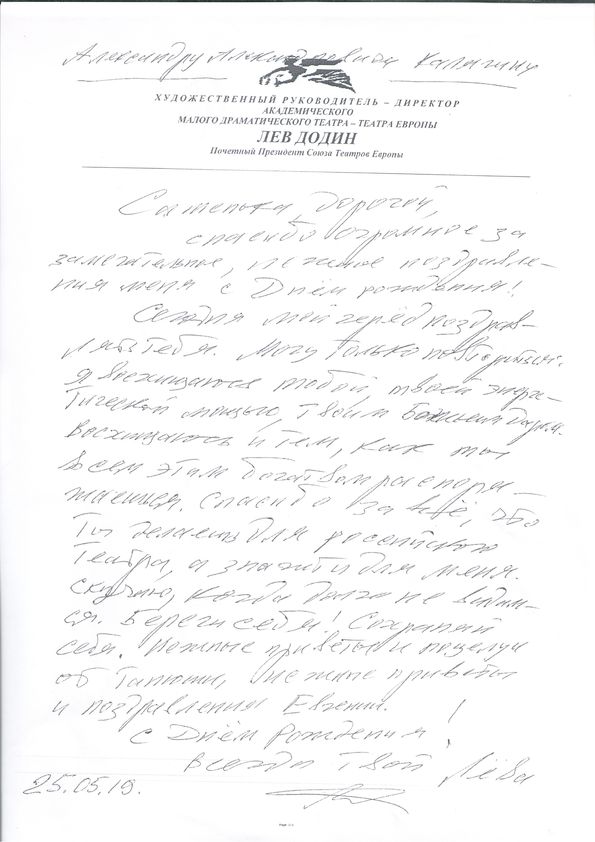 Александру Александровичу Калягину
ХУДОЖЕСТВЕННЫЙ РУКОВОДИТЕЛЬ – ДИРЕКТОР
АКАДЕМИЧЕСКОГО
МАЛОГО ДРАМАТИЧЕСКОГО ТЕАТРА – ТЕАТРА ЕВРОПЫ
ЛЕВ ДОДИН
Почетный Президент Союза Театров Европы
Сашенька, дорогой,
спасибо огромное за
замечательное, нежное поздравле-
ние меня с Днём рождения!
Сегодня мой черёд поздрав-
лять тебя. Могу только повториться:
я восхищаюсь тобой, твоей энерге-
тической мощью, твоим Божьим даром.
Восхищаюсь и тем, как ты
всем этим богатством распоря-
жаешься. Спасибо за всё, что
ты делаешь для российского
театра, а значит и для меня.
Скучаю, когда долго не видим-
ся. Береги себя! Сохраняй
себя. Нежные приветы и поцелуи
от Танюши, нежные приветы
и поздравления Евгении.
С Днём Рождения!
Всегда твой Лёва
25.05.19.